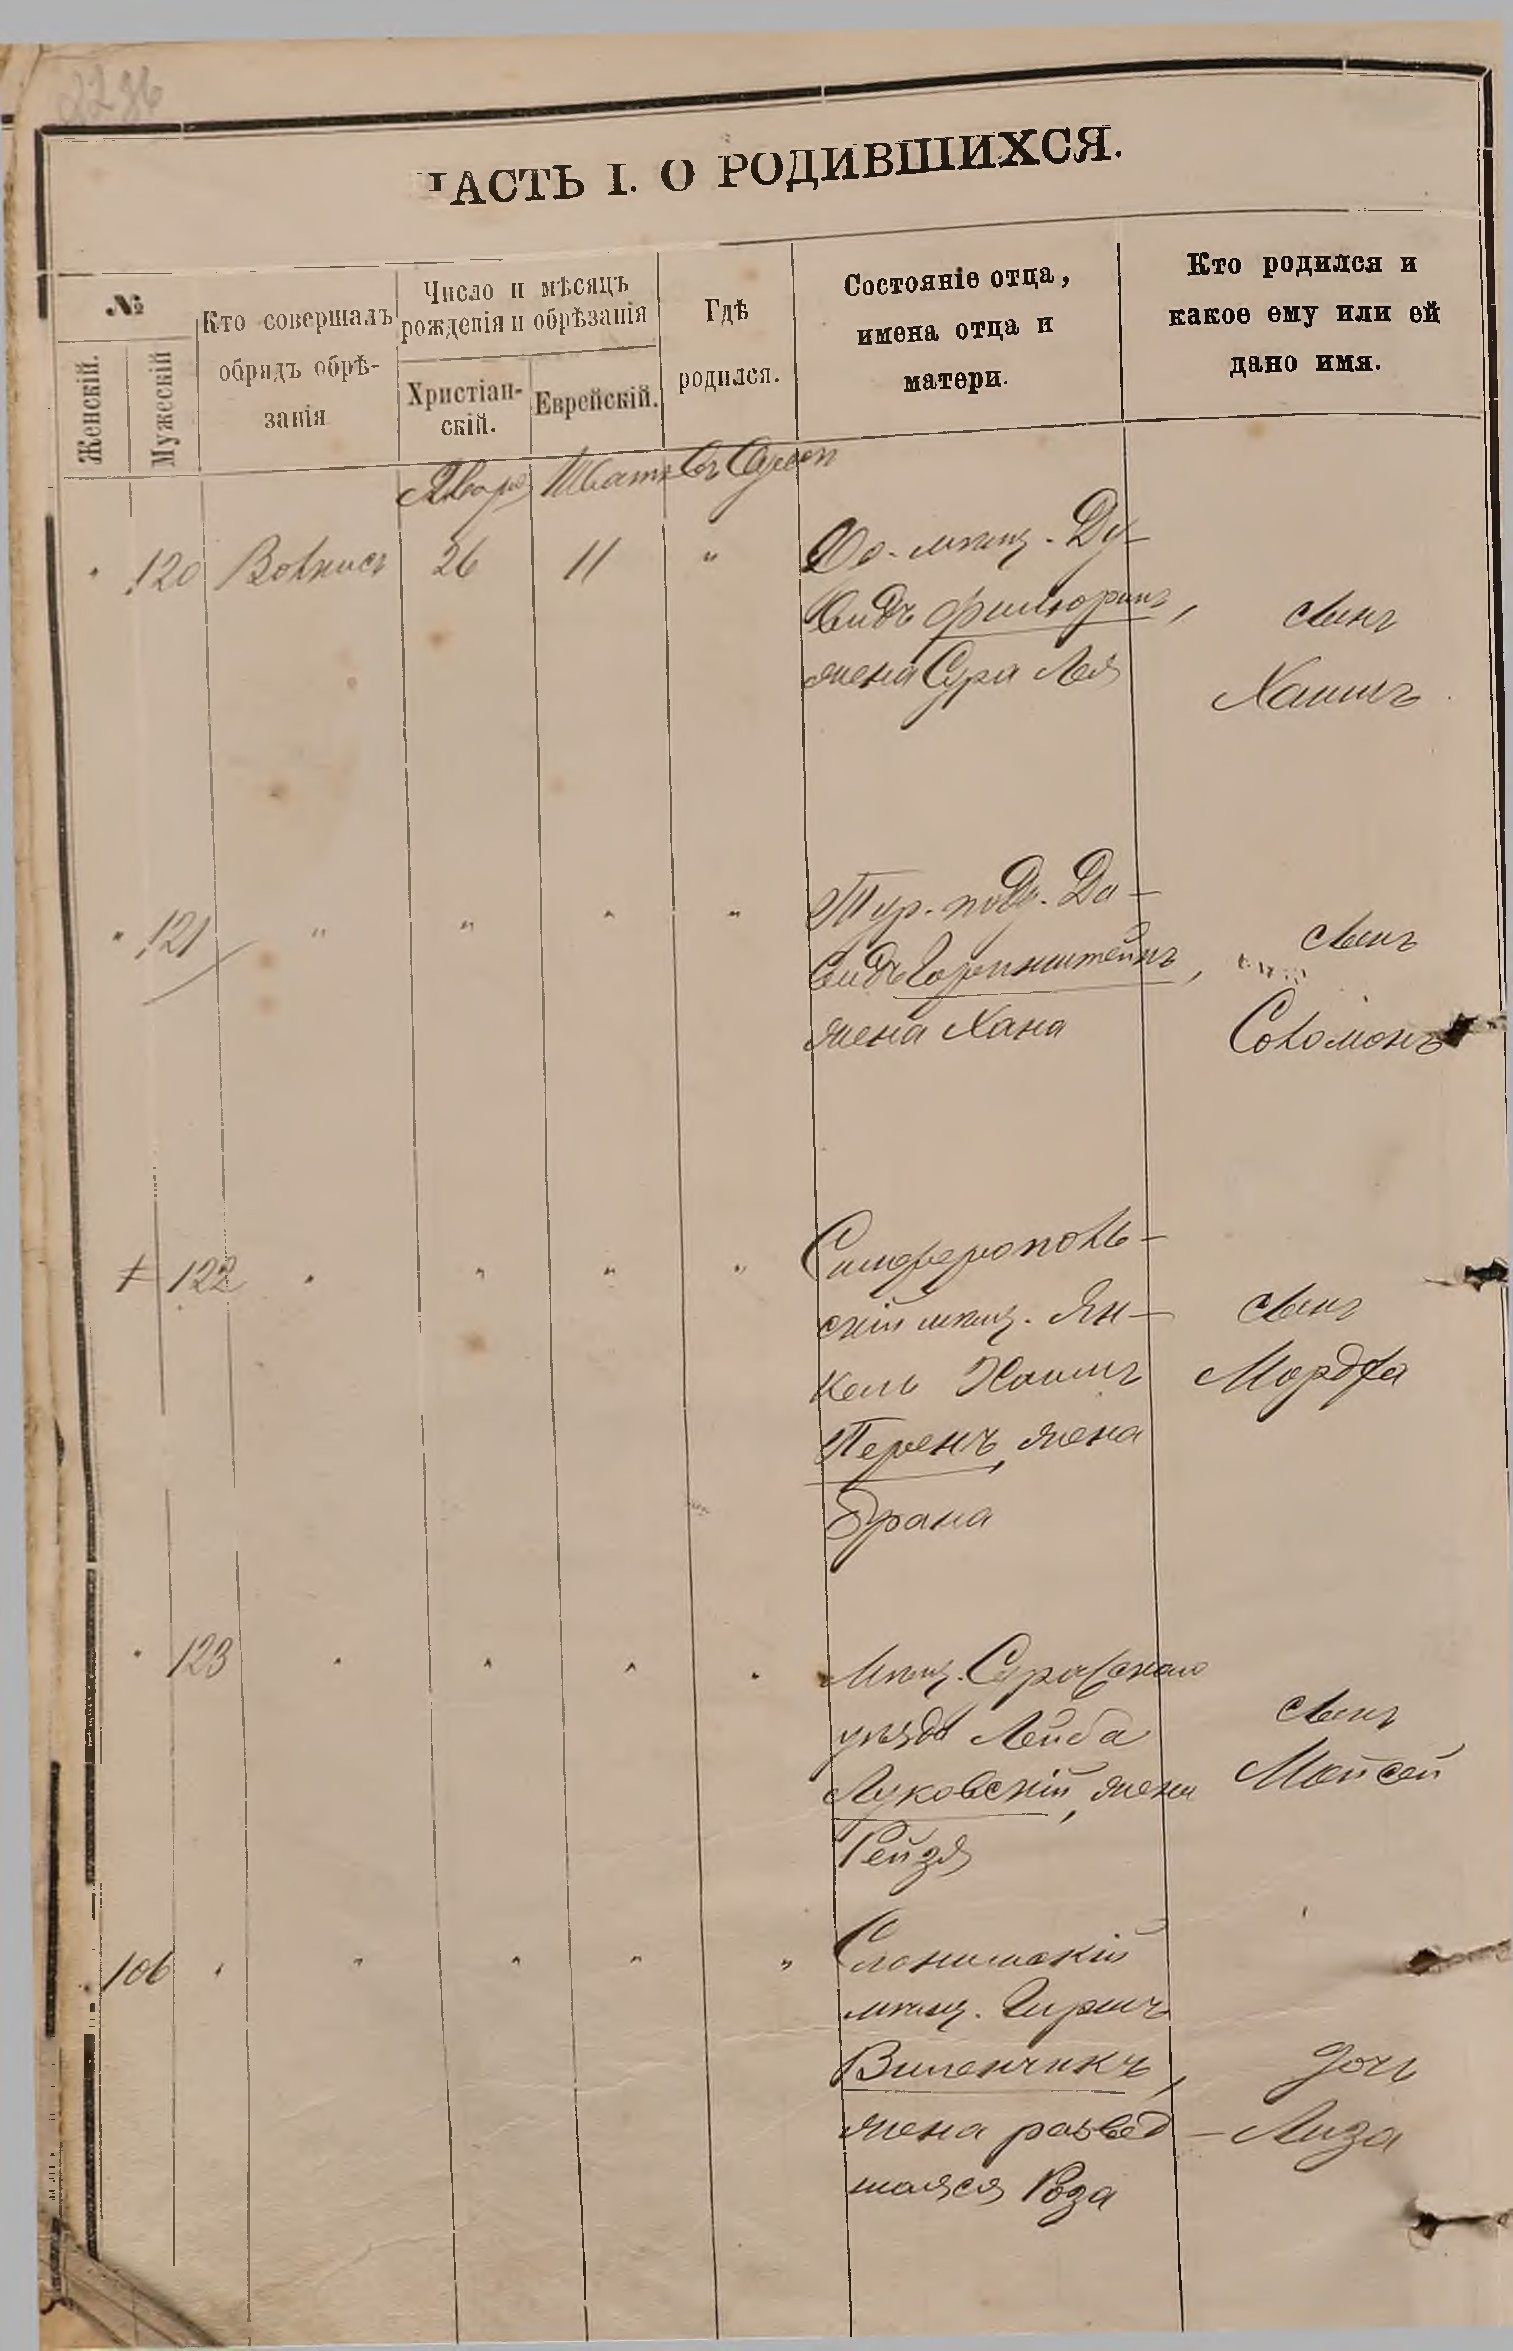 ЧАСТЬ I. О РОДИВШИХСЯ.
№
Женскій.
Мужескій
Кто совершалъ
обрядъ обрѣ-
занія
Число и мѣсяцъ
рожденія и обрѣзанія
Христіан-
скій.
Еврейскій.
Гдѣ
родился.
Состояніе отца,
имена отца и
матери.
Кто родился и
какое ему или ей
дано имя.
120 26 11 "
мѣщ. Ду-
видъ
жена Сура Лея
сынъ
Хаимъ
121 " " " "
Тур. подд. Да-
видъ Горенштейнъ,
жена Хана
сынъ
Соломонъ
122 " " " "
Симферополь-
скій мѣщ. Ян-
кель Хаимъ
Перенъ, жена
Брана
сынъ
Мордха
123 " " " "
Мѣщ.
уѣзда Лейба
Луковскій, жена
Рейзя
сынъ
Мойсей
106 " " " " "
Слонимскій
мѣщ. Гиршъ
Виленчикъ,
жена развед-
шаяся Роза
дочь
Лиза